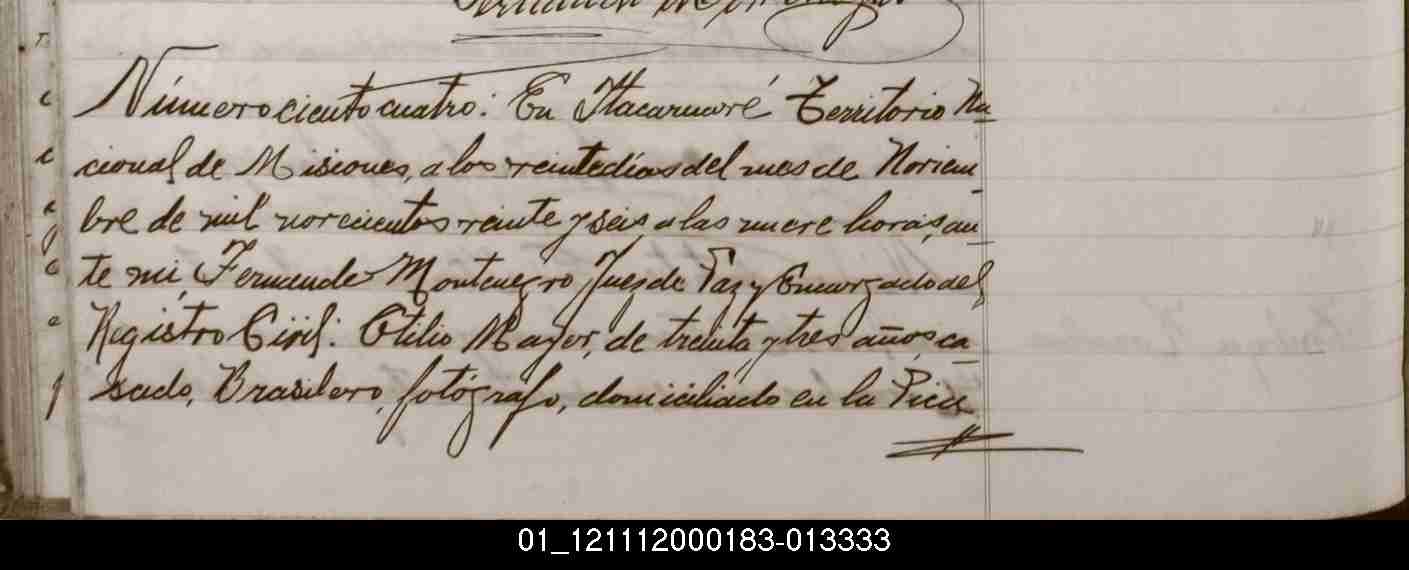 Número ciento cuatro: En Itacaruaré Territorio Na_
cional de Misiones, a los veinte dias del mes de Noviem_
bre de mil novecientos veinte y seis, a las nueve horas, an_
te mi, Fernando Montenegro Juez de Paz y Encargado del
Registro Civil: Otilio Mayer, de treinta y tres años, ca_
sado, Brasilero, fotógrafo, domiciliado en la Pica
01_121112000183-013333